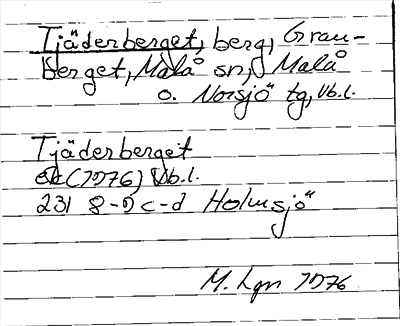 Tjäderberget, berg, Gran-
berget, Malå sn, Malå
o. Norsjö tg, Vb.l.
Tjäderberget
ek (1976) Vb.l.
231 8-9 c-d Holmsjö
M. Lgn 1976